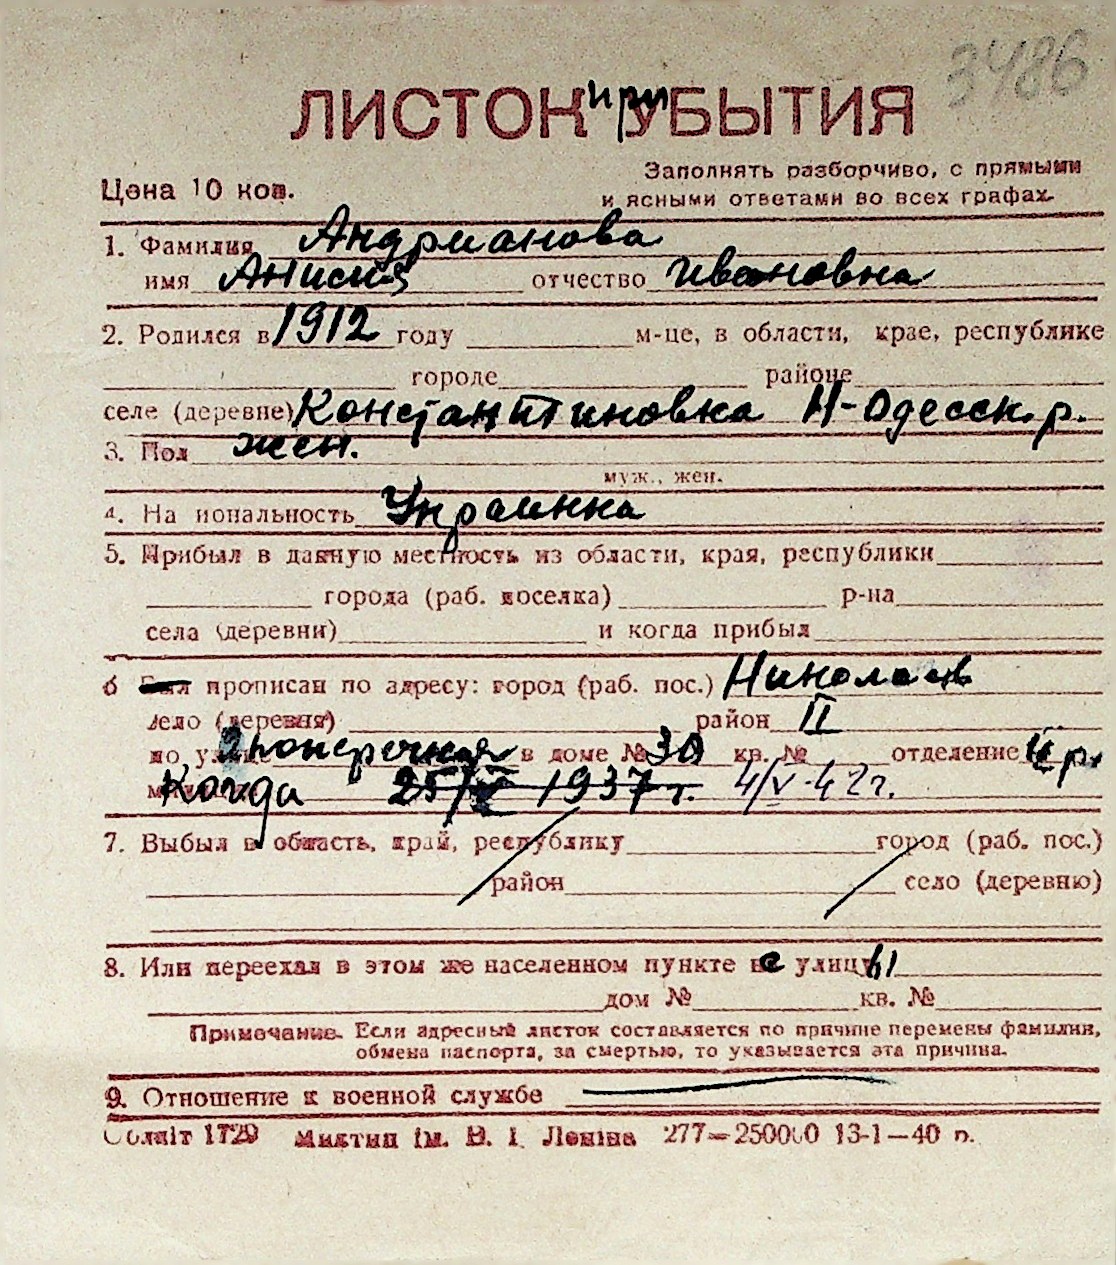 3486
ЛИСТОК при УБЫТИЯ
Заполнять разборчиво, с прямыми
Цена 10 коп.
и ясными ответами во всех графах.
1. Фамилия Андрианова
имя Анисия отчество Ивановна
2. Родился в 1912 году м-це, в области, крае, республике
городе районе
селе (деревне) Константиновка Н-Одесск. р.
3. Пол жен.
муж., жен.
4. На иональность Украинка
5. Прибыл в данную местность из области, края, республики
города (раб. поселка) р-на
села (деревни) и когда прибыл
6 Был прописан по адресу: город (раб. пос.) Николаев
село (деревня) район II
по улице поперечная в доме № 30 кв. № отделение
Когда 25/V 1937 г. 4/V-42 г.
7. Выбыл в область, край, республику город (раб. пос.)
район село (деревню)
8. Или переехал в этом же населенном пункте с улицы
дом № кв. №
Примечание. Если адресный листок составляется по причине перемены фамилии,
обмена паспорта, за смертью, то указывается эта причина.
9. Отношение к военной службе
Облліт 1729 Миктип ім. В. І. Леніна 277—250000 13-1—40 п.